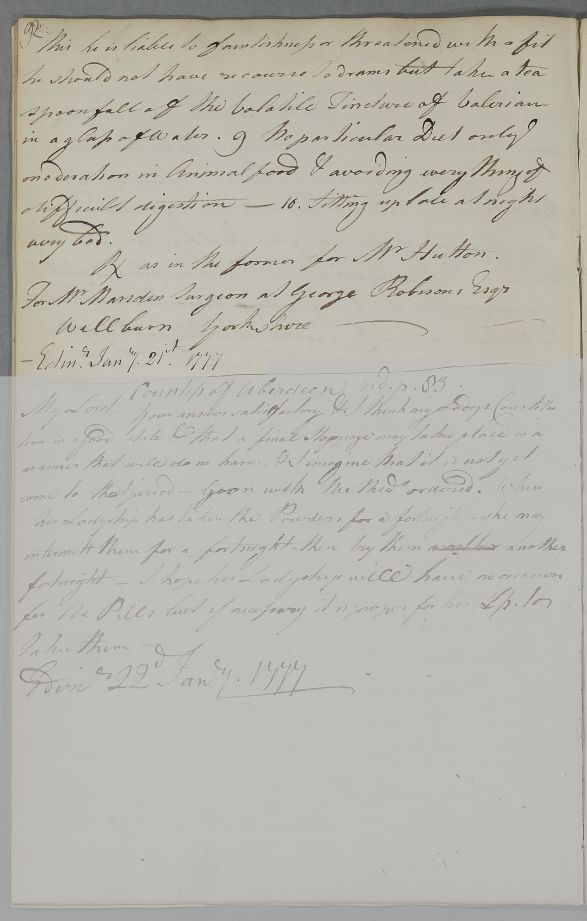 92.
this he is liable to faintishness or threatened with a fit
he should not have recourse to drams but take a tea
spoonfull of the Volatile Tincture of Valerian
in a glass of Water. 9 No particular Diet only
moderation in Animal food & avoiding every thing of
difficult digestion — 10. Sitting up late at night
very bad.
℞ as in the former for Mr Hutton.
For Mr Marsden Surgeon at George Robisons Esqr
Wellburn Yorkshire
— Edinr. Jany. 21st. 1777
Countess of Aberdeen vid. p. 83.
My Lord Your answer satisfactory & I think my Ladys Constitu
tion in a good state & that a final stoppage may take place in a
manner that will do no harm, & I imagine that it is not yet
come to that period — Go on with the Meds ordered. When
her Ladyship has taken the Powders for a fortnight — she may
intermitt them for a fortnight then try them another
fortnight — I hope her Ladyship will have no occasion
for the Pills but if necessary it is proper for her Lp. to
take them —
Edinr 22d Jany. 1777